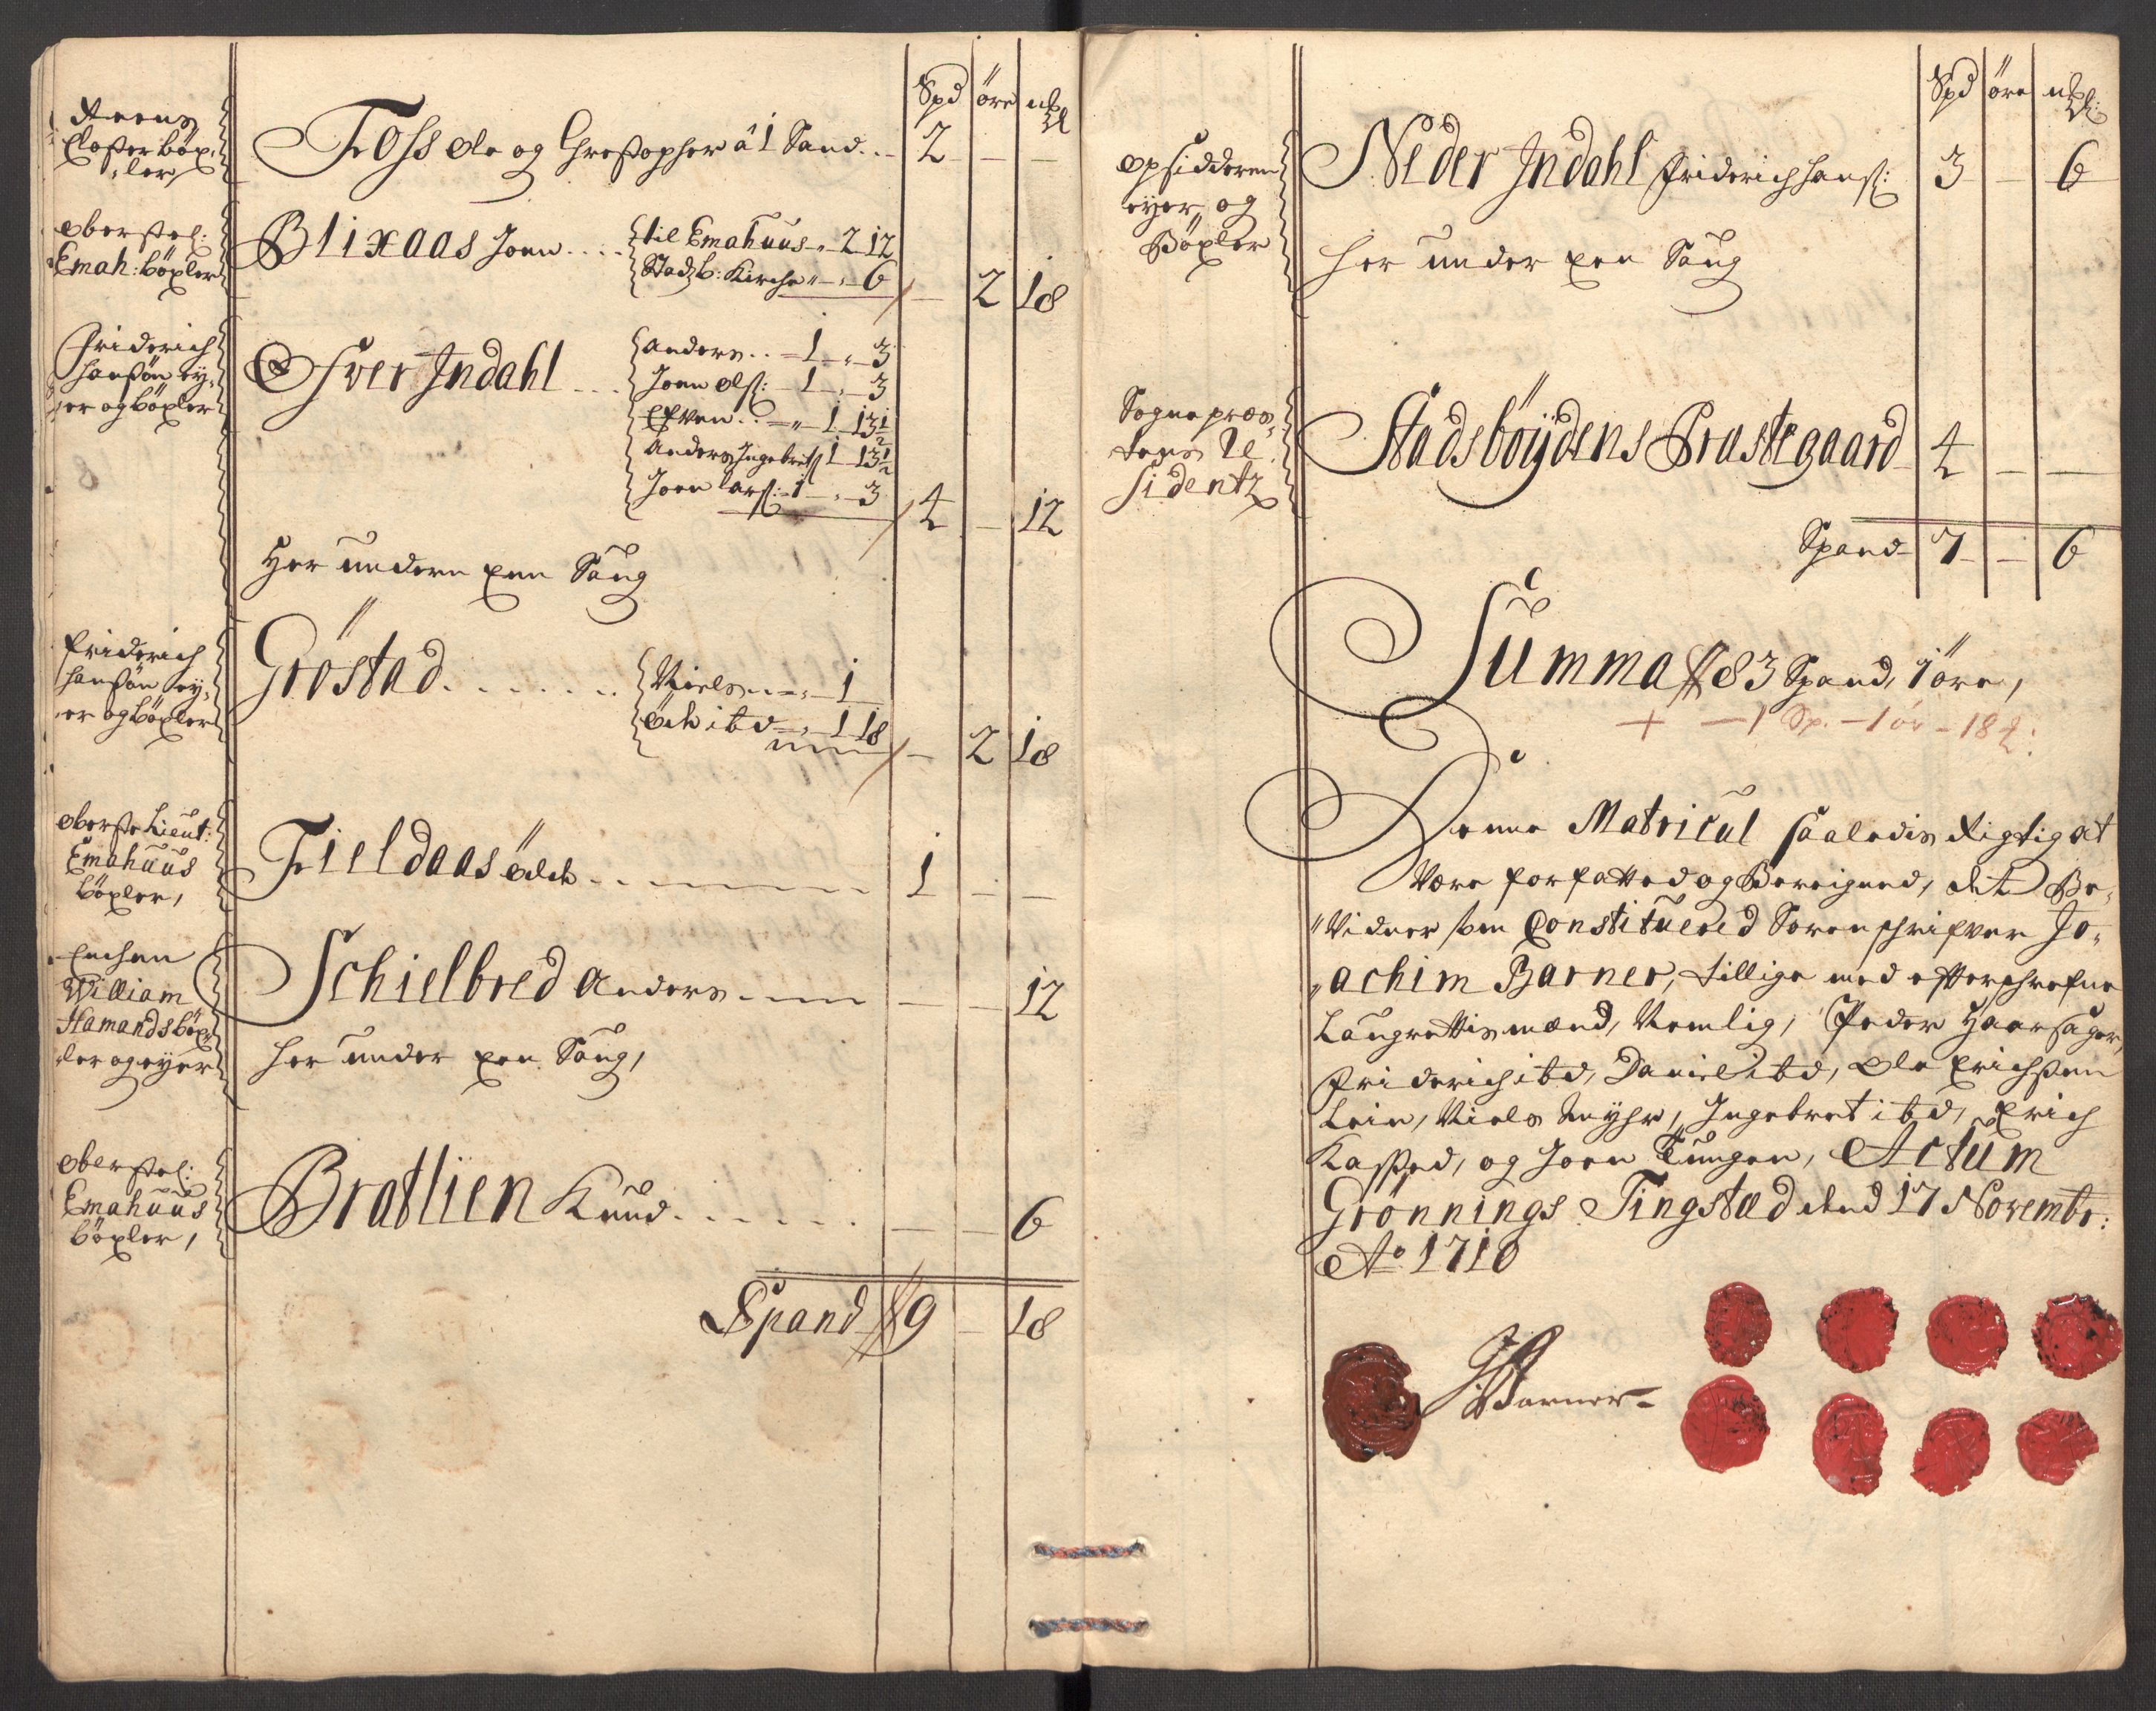 Spd öre mkl
Reens
Closter böx,
ler,
Foss Ole og Chrestopher â 1 Sand . . - 2 - -
Oberstel:
Emah: böxler
Blixaas Joen . . . . til Emahuus - 2 12
Stadsb: Kirche - 6
- 2 18
Friderich
Hansön ey,
er og böxler
Ofver Indahl . . . Anders . . - 1 - 3
Joen Ols: - 1 - 3
Efven . . - 1 13½
Anders Ingebrets 1 13½
Joen Lars: - 1 - 3
4 - 12
Her undern een Saug
Friderich
Hansön ey,
er og böxler
Gröstad . . . . . . . Niels . . - 1
Och ibd - 1 18
- 2 18
Oberste Lieut:
Emahuus
böxler,
Fieldaas - 1 - -
Enchen
William
Hamands böx,
ler og eyer
Schielbred Anders - - - 12
her under een Saug,
Oberstel:
Emahuus
böxler,
Bratlien Knud . . . . . . - - 6
Spand 19 - 18
Spd öre mkl:
Opsidderen
eyer og
Böxler
Neder Indahl Friderich Hans: 3 - 6
her under een Saug
Sogne præs,
tens Re
sidentz
Stadsböydens Præstegaard 4 - -
Spand 7 - 6
Summa 183 Spand, 1 öre,
+ - 1 Sp. - 1 ör - 18 l:
Denne Matricul saaledis Rigtig at
være forfatted og Bereigned, det Be,
"vidner som Constituered Sorenschrifver Jo,
"achim Barner, tillige med effterschrefne
Laugrettis mænd, Nemlig, Peder Haarsager,
Friderich ibd, Daniel ibd, Ole Erichsen
Lein, Niels Myhr, Ingebret ibd, Erich
Kassed, og Joen Tungen, Actum
Grönnings Tingstæd dend 17 Novembr:
Ao 1710
JBarner